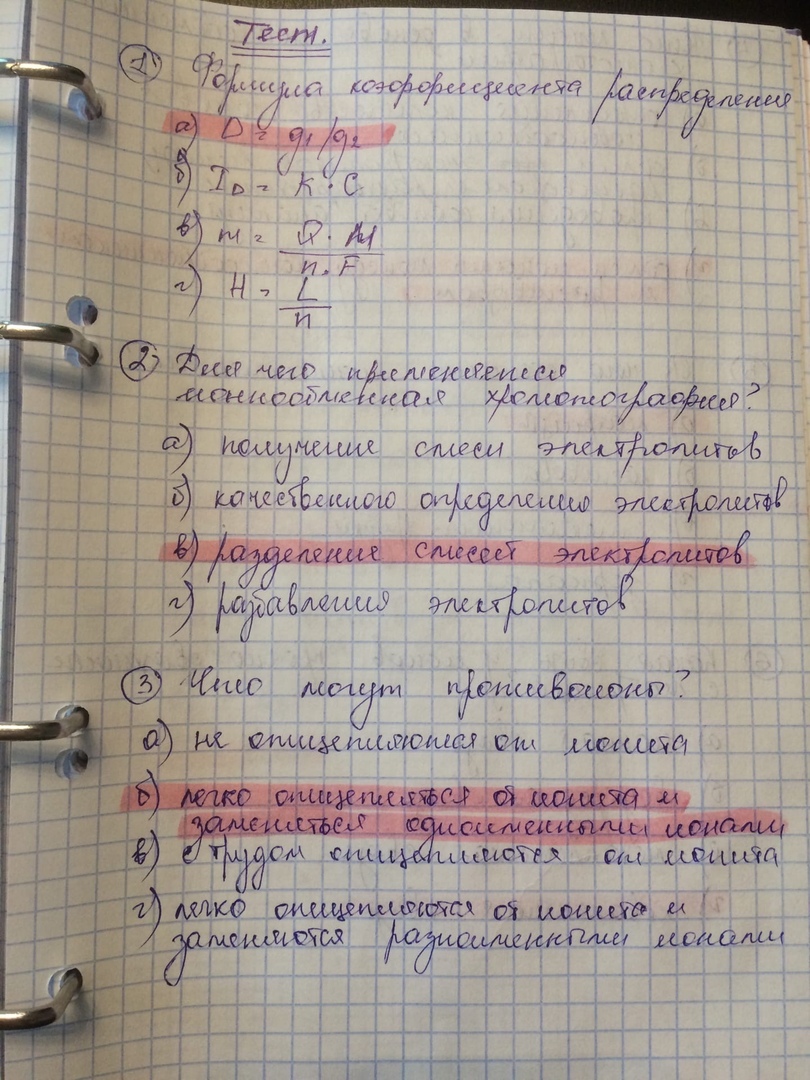 Тест.
1) Формула коэффициента распределения
а) D = g₁/g₂
б) I_D = K · C
в) m = Q · M / n · F
г) H = L / n
2) Для чего применяется
ионнообменная хроматография?
а) получение смеси электролитов
б) качественного определения электролитов
в) разделение смесей электролитов
г) разбавления электролитов
3) Что могут противоионы?
а) не отщепляются от ионита
б) легко отщепляться от ионита и
заменяться одноименными ионами
в) с трудом отщепляются от ионита
г) легко отщепляются от ионита и
заменяются разноименными ионами